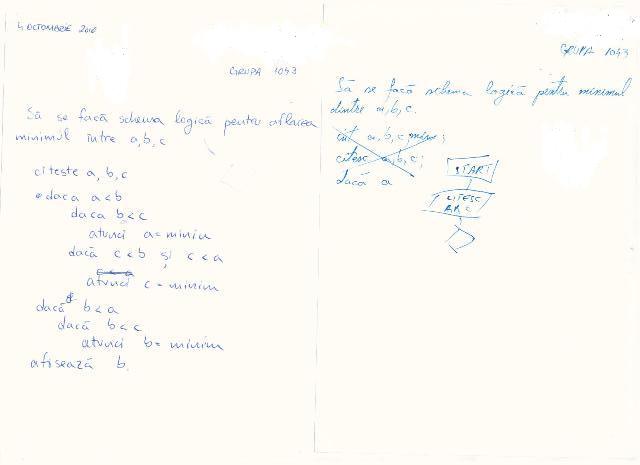 4 OCTOMBRIE 2010
GRUPA 1043
Să se facă schema logică pentru aflarea
minimul între a,b,c
citește a, b, c
daca a<b
daca b<c
atunci a=minim
dacă c<b și c<a
c<a
atunci c=minim
dacă b<a
dacă b<c
atunci b=minim
afisează b.
GRUPA 1043
Să se facă schema logică pentru minimul
dintre a,b,c.
int a,b,c
citesc a,b,c;
dacă a
START
CITESC
A,B,C